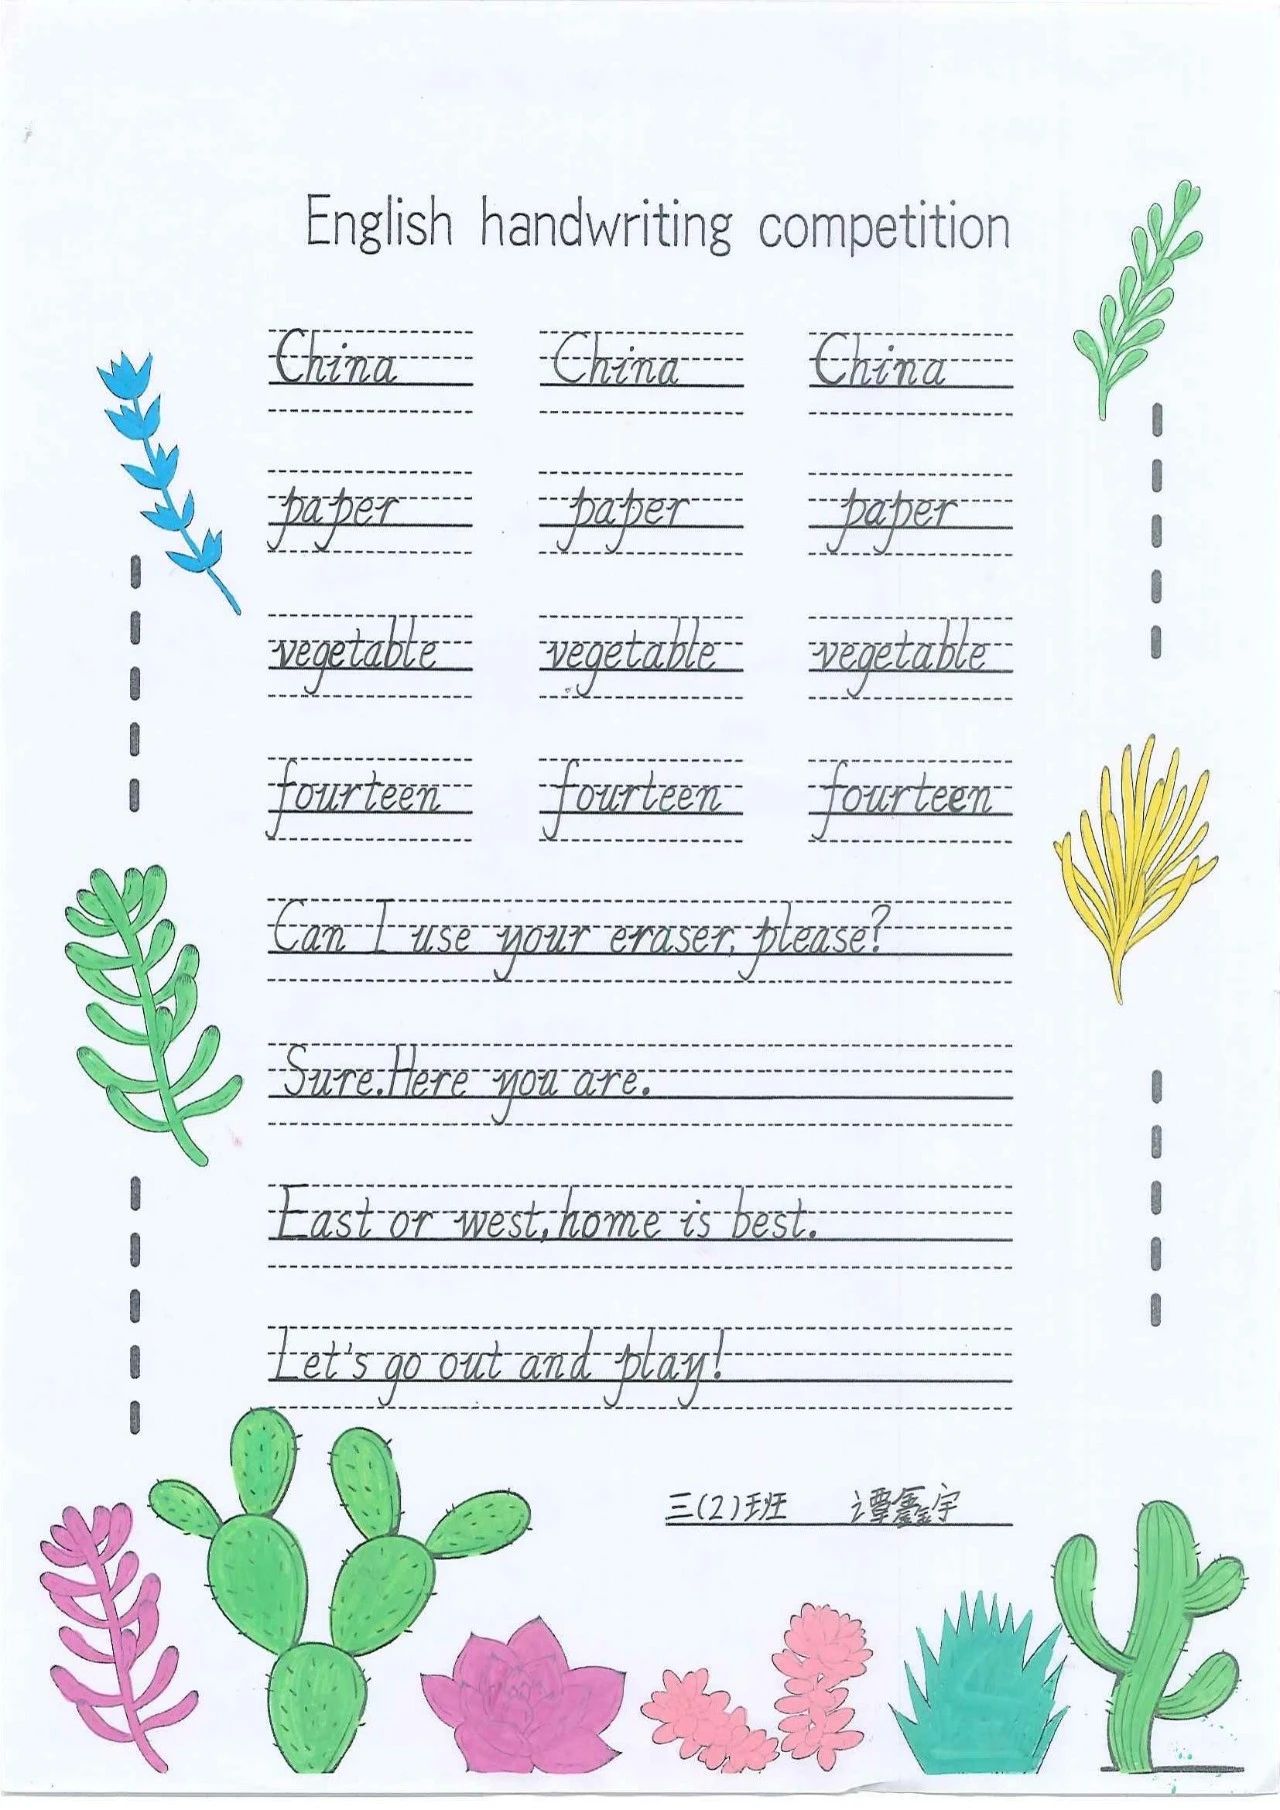 English handwriting competition
China China China
paper paper paper
vegetable vegetable vegetable
fourteen fourteen fourteen
Can I use your eraser, please?
Sure.Here you are.
East or west,home is best.
Let's go out and play!
三(2)班 谭鑫宇